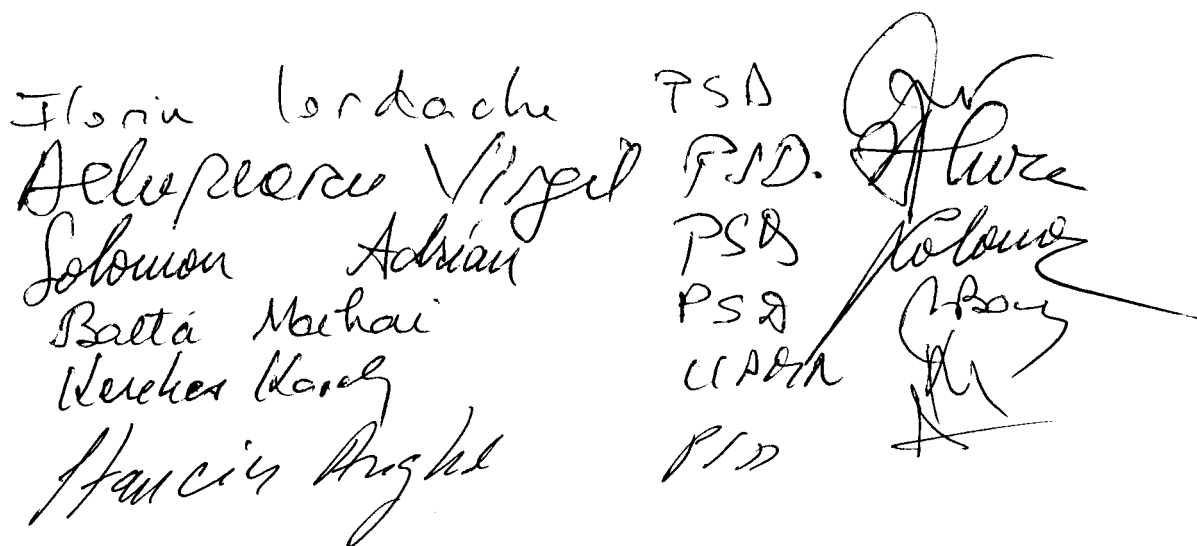 Florin Iordache PSD
Virgil PSD.
Solomon Adrian PSD Solomon
Baltă Mihai PSD
Kerekes Karoly UDMR
Stanciu Anghel PSD